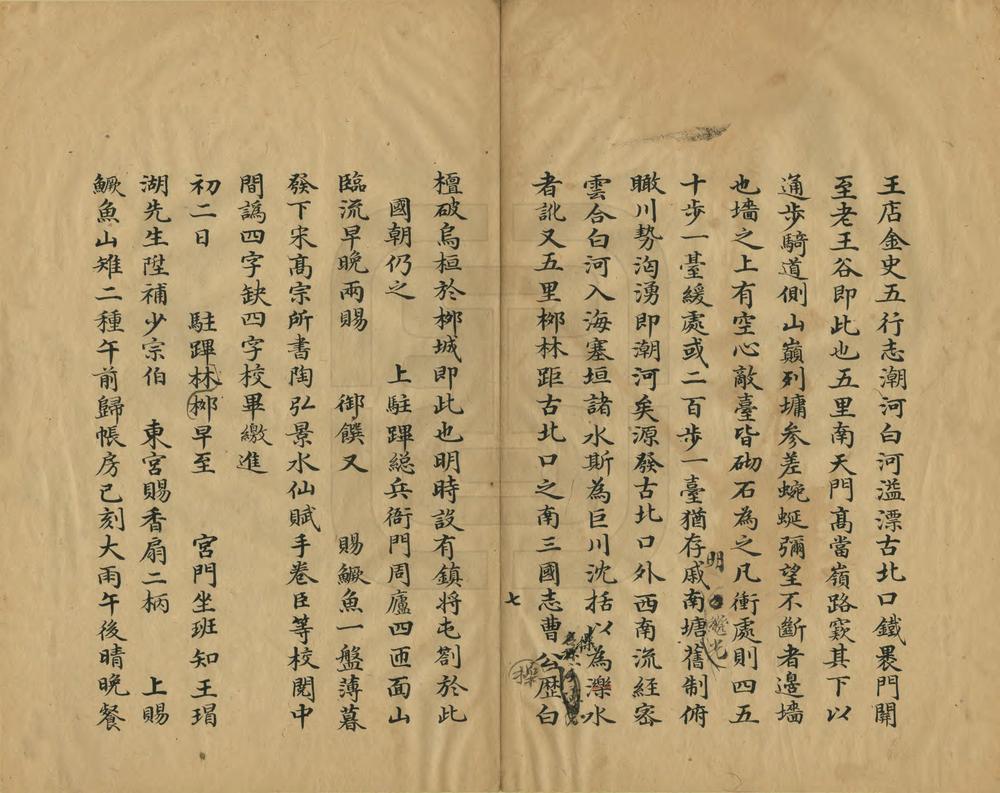 王店金史五行志潮河白河溢漂古北口鐵裹門關
至老王谷即此也五里南天門髙當嶺路竅其下以
通步騎道側山巔列墉参差蜿蜒彌望不斷者邊墻
也墻之上有空心敵臺皆砌石為之凡衝處則四五
十步一臺緩處或二百步一臺猶存戚南塘舊制俯
明
瞰川勢洶湧即潮河矣源發古北口外西南流経宻
雲合白河入海塞垣諸水斯為巨川沈括以為濼水
者訛又五里栁林距古北口之南三國志曹公歴白
操
七
檀破烏桓於栁城即此也明時設有鎮將屯劄於此
國朝仍之 上駐蹕総兵衙門周廬四匝面山
臨流早晚兩賜 御饌又 賜鱖魚一盤薄暮
發下宋髙宗所書陶弘景水仙賦手卷臣等校閱中
間譌四字缺四字校畢繳進
初二日 駐蹕林栁早至 宮門坐班知王瑁
湖先生陞補少宗伯 東宮賜香扇二柄 上賜
鱖魚山雉二種午前歸帳房已刻大雨午後晴晚餐